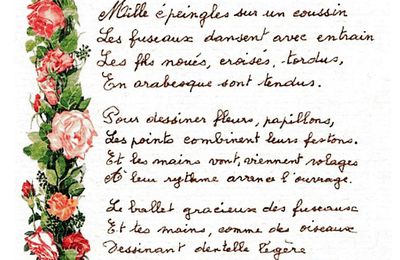 Mille épeingles sur un coussin
Les fuseaux dansent avec entrain
Les fils noués, croisés, tordus,
En arabesque sont tendus.
Pour dessiner fleurs, papillons,
Les points combinent leurs festons.
Et les mains vont, viennent volages
A leur rythme avance l'ouvrage.
Le ballet gracieux des fuseaux
Et tes mains, comme des oiseaux
Dessinant dentelle légère